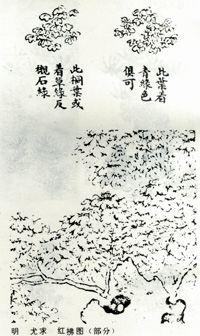 此葉着
青綠色
俱可
此桐葉或
着草綠反
襯石綠
明 尤求 红拂图(部分)